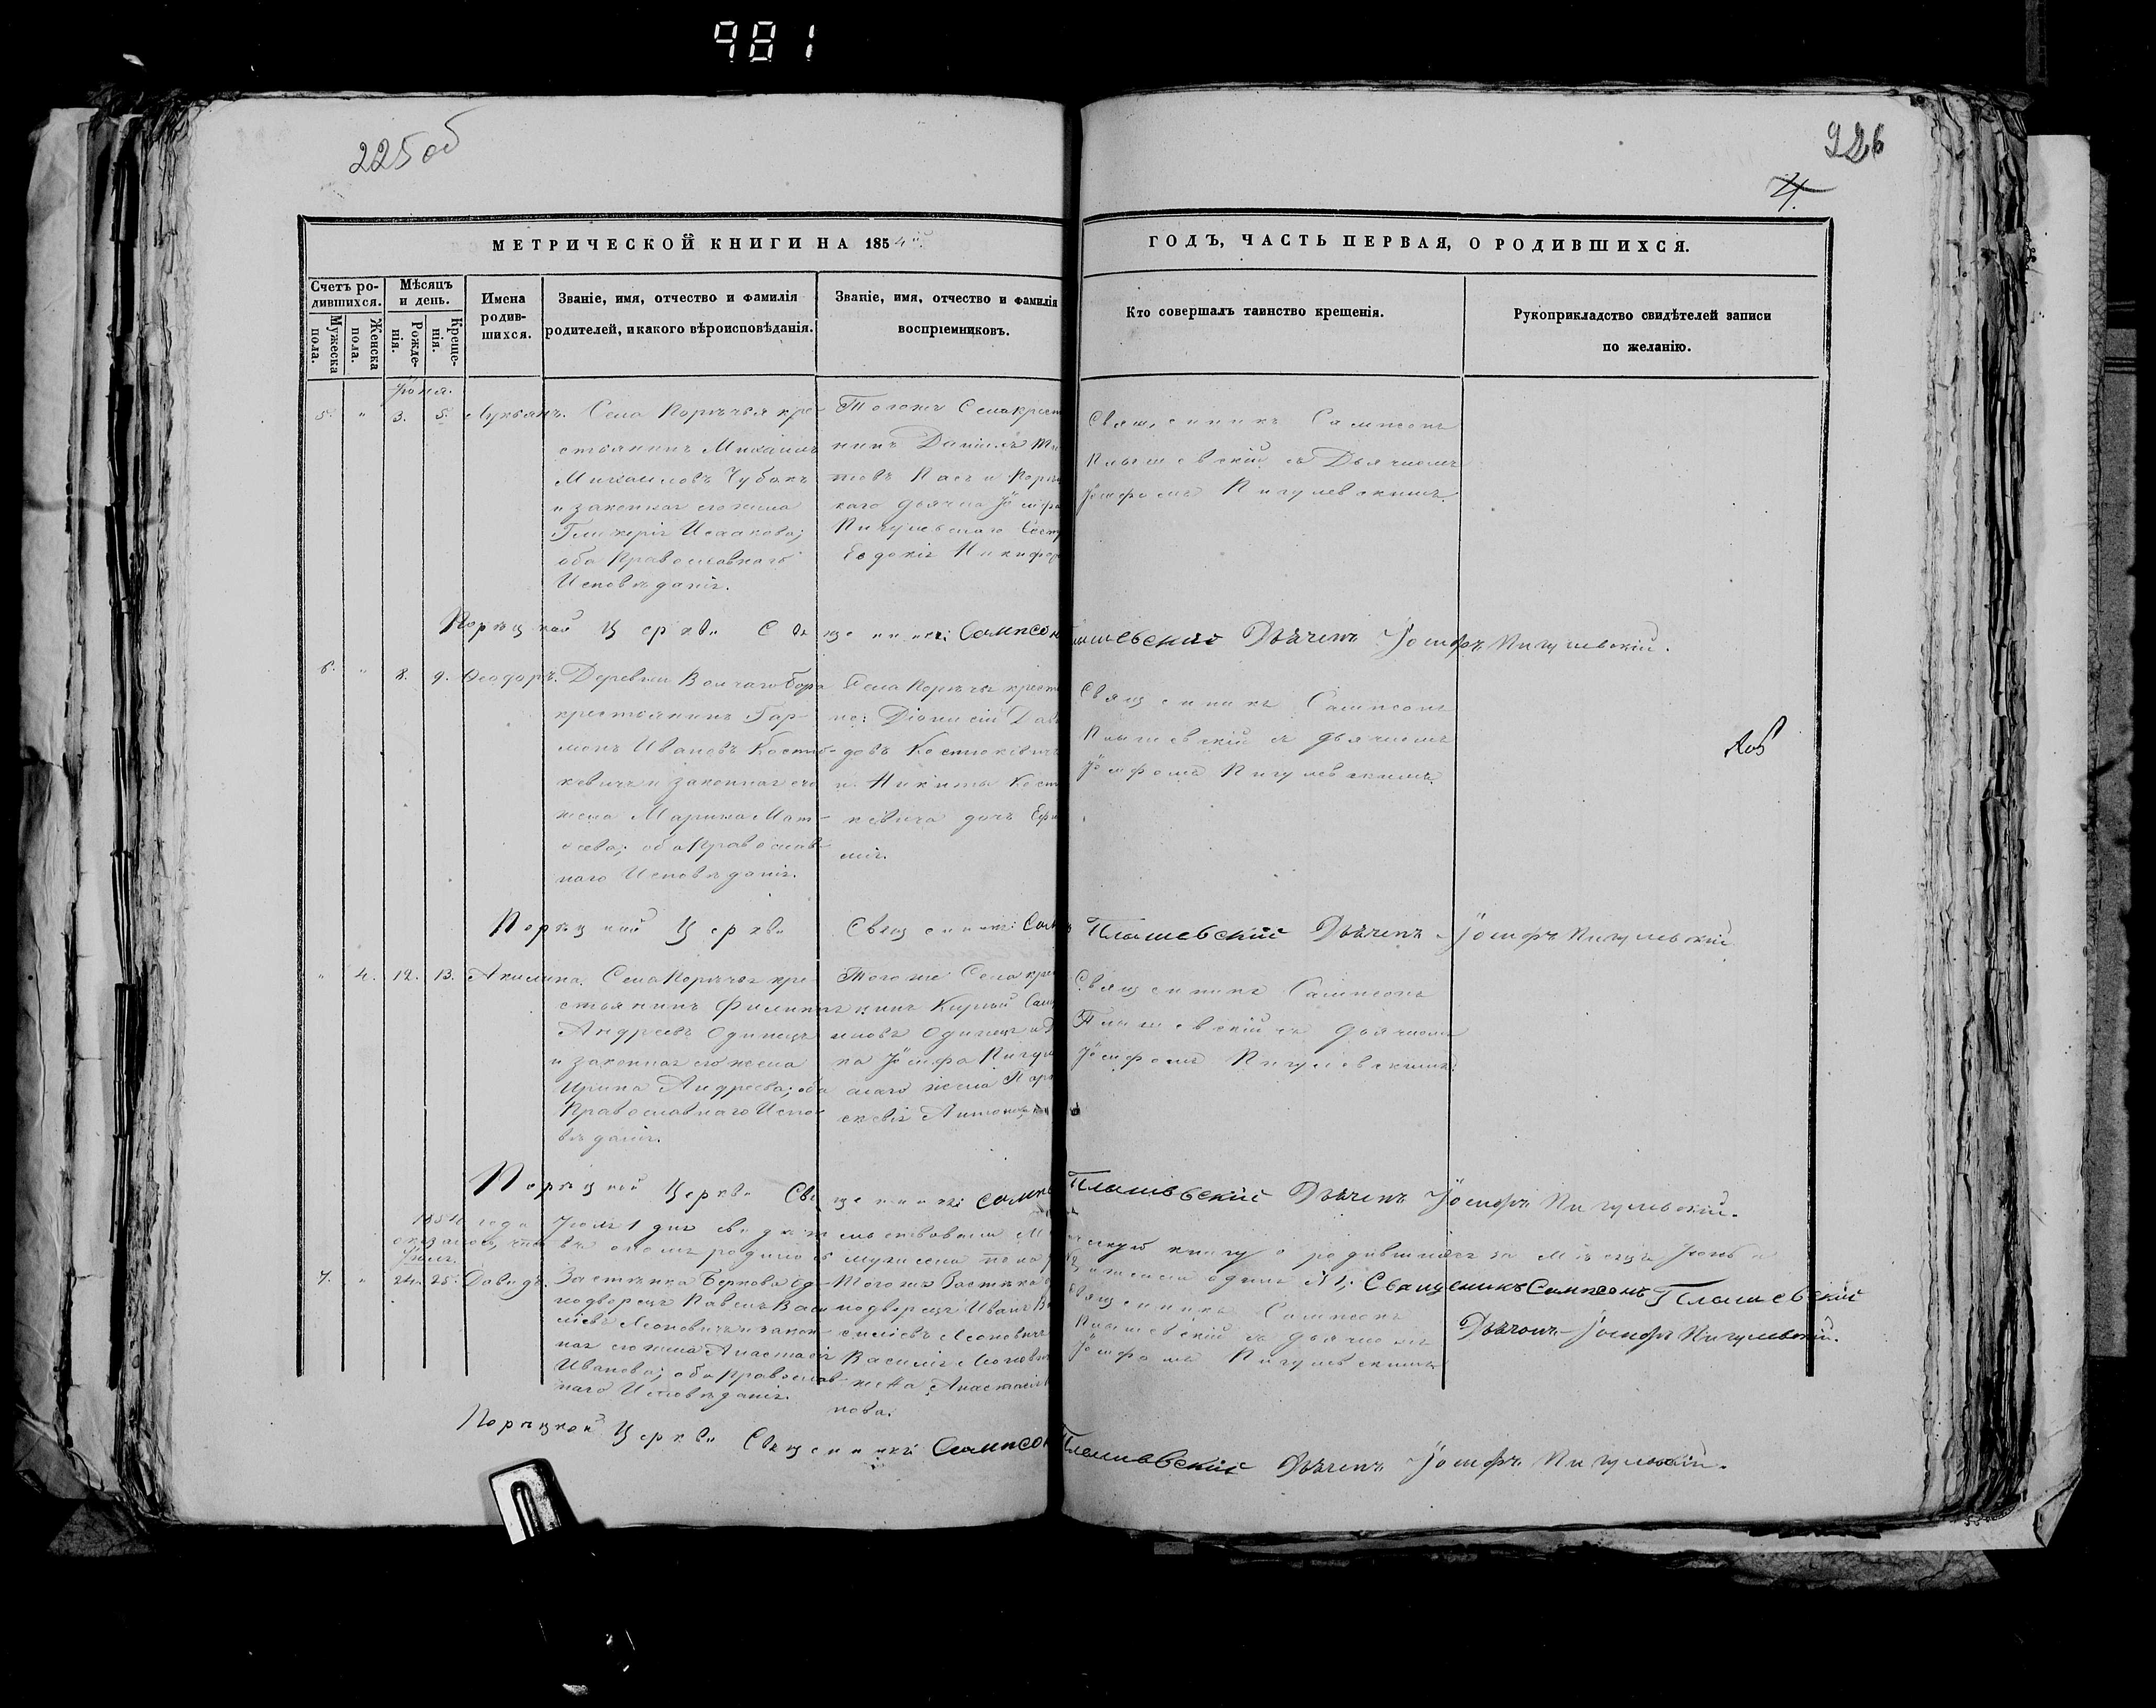 981
225 об
926
4.
МЕТРИЧЕСКОЙ КНИГИ НА 1854й
ГОДЪ, ЧАСТЬ ПЕРВАЯ, О РОДИВШИХСЯ.
Счетъ родившихся.
Мужеска пола.
Женска пола.
Мѣсяцъ и день.
Рожденія.
Крещенія.
Имена родившихся.
Званіе, имя, отчество и фамилія
родителей, и какого вѣроисповѣданія.
Званіе, имя, отчество и фамилія
воспріемниковъ.
Кто совершалъ таинство крещенія.
Рукоприкладство свидѣтелей записи
по желанію.
Іюня.
5. " 3. 5. Лукьянъ.
Села Порѣчья кре-
стьянинъ Михаилъ
Михаиловъ Чубакъ
и законная его жена
Гликерія Исаакова;
оба Православнаго
Исповѣданія.
Тогожъ Села крест
нинъ Даніилъ
каго дьячка Іосифа
Пигулевскаго
Евдокія Никифор
Священникъ Сампсонъ
Плышевскій съ Дьячкомъ
Іосифомъ Пигулевскимъ.
Порѣцкой Церкви Священникъ Сампсонъ Плышевскій Дьячекъ Іосифъ Пигулевскій.
6. " 8. 9. Ѳеодоръ.
Деревни Волчаго Бора
крестьянинъ Гар-
монъ Ивановъ Костю-
кевичъ и законная его
жена Марина Мат-
ѳеева; оба Православ-
наго Исповѣданія.
Села Порѣчья крест
не: Діонисій Дав
довъ Костюкевичъ
и Никиты Кост
кевича дочь Ефи
мія.
Священникъ Сампсонъ
Плышевскій съ дьячкомъ
Іосифомъ Пигулевскимъ.
Порѣцкой Церкви Священникъ Сампсонъ Плышевскій Дьячекъ Іосифъ Пигулевскій.
" 4. 12. 13. Акилина.
Села Порѣчья кре-
стьянинъ Филиппъ
Андреевъ Одинецъ
и законная его жена
Ирина Андреева; оба
Православнаго Испо-
вѣданія.
Того же Села кре
нинъ Кирилъ Сам
иновъ Одинецъ и Д
ка Іосифа Пигул
скаго жена Пара
скевія Антонова
Священникъ Сампсонъ
Плышевскій съ дьячкомъ
Іосифомъ Пигулевскимъ.
Порѣцкой Церкви Священникъ Сампсонъ Плышевскій Дьячекъ Іосифъ Пигулевскій.
1854 года Іюля 1 дня свидѣтельствовали М
ческую книгу о родившихся за Мѣсяцъ Іюнь и
оказалось, что въ ономъ родилось мужеска пола
женска одинъ №1; Священникъ Сампсонъ Плышевскій
Дьячокъ Іосифъ Пигулевскій.
Іюля.
7. " 24. 25. Давидъ.
Застѣнка Беркова Од-
нодворецъ Павелъ Васи-
ліевъ Леоновичъ и закон-
ная его жена Анастасія
Иванова; оба Православ-
наго Исповѣданія.
Тогожъ Застѣнка
нодворецъ Иванъ Ва
силіевъ Леоновичъ
Василія Леонови
жена Анастасія
нова.
Священникъ Сампсонъ
Плышевскій съ дьячкомъ
Іосифомъ Пигулевскимъ
Порѣцкой Церкви Священникъ Сампсонъ Плышевскій Дьячекъ Іосифъ Пигулевскій.